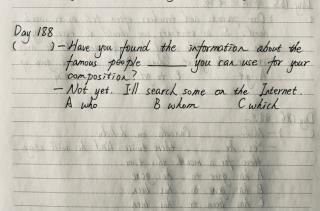 Day 188
( ) - Have you found the information about the
famous people ______ you can use for your
composition?
- Not yet. I'll search some on the Internet.
A who B whom C which